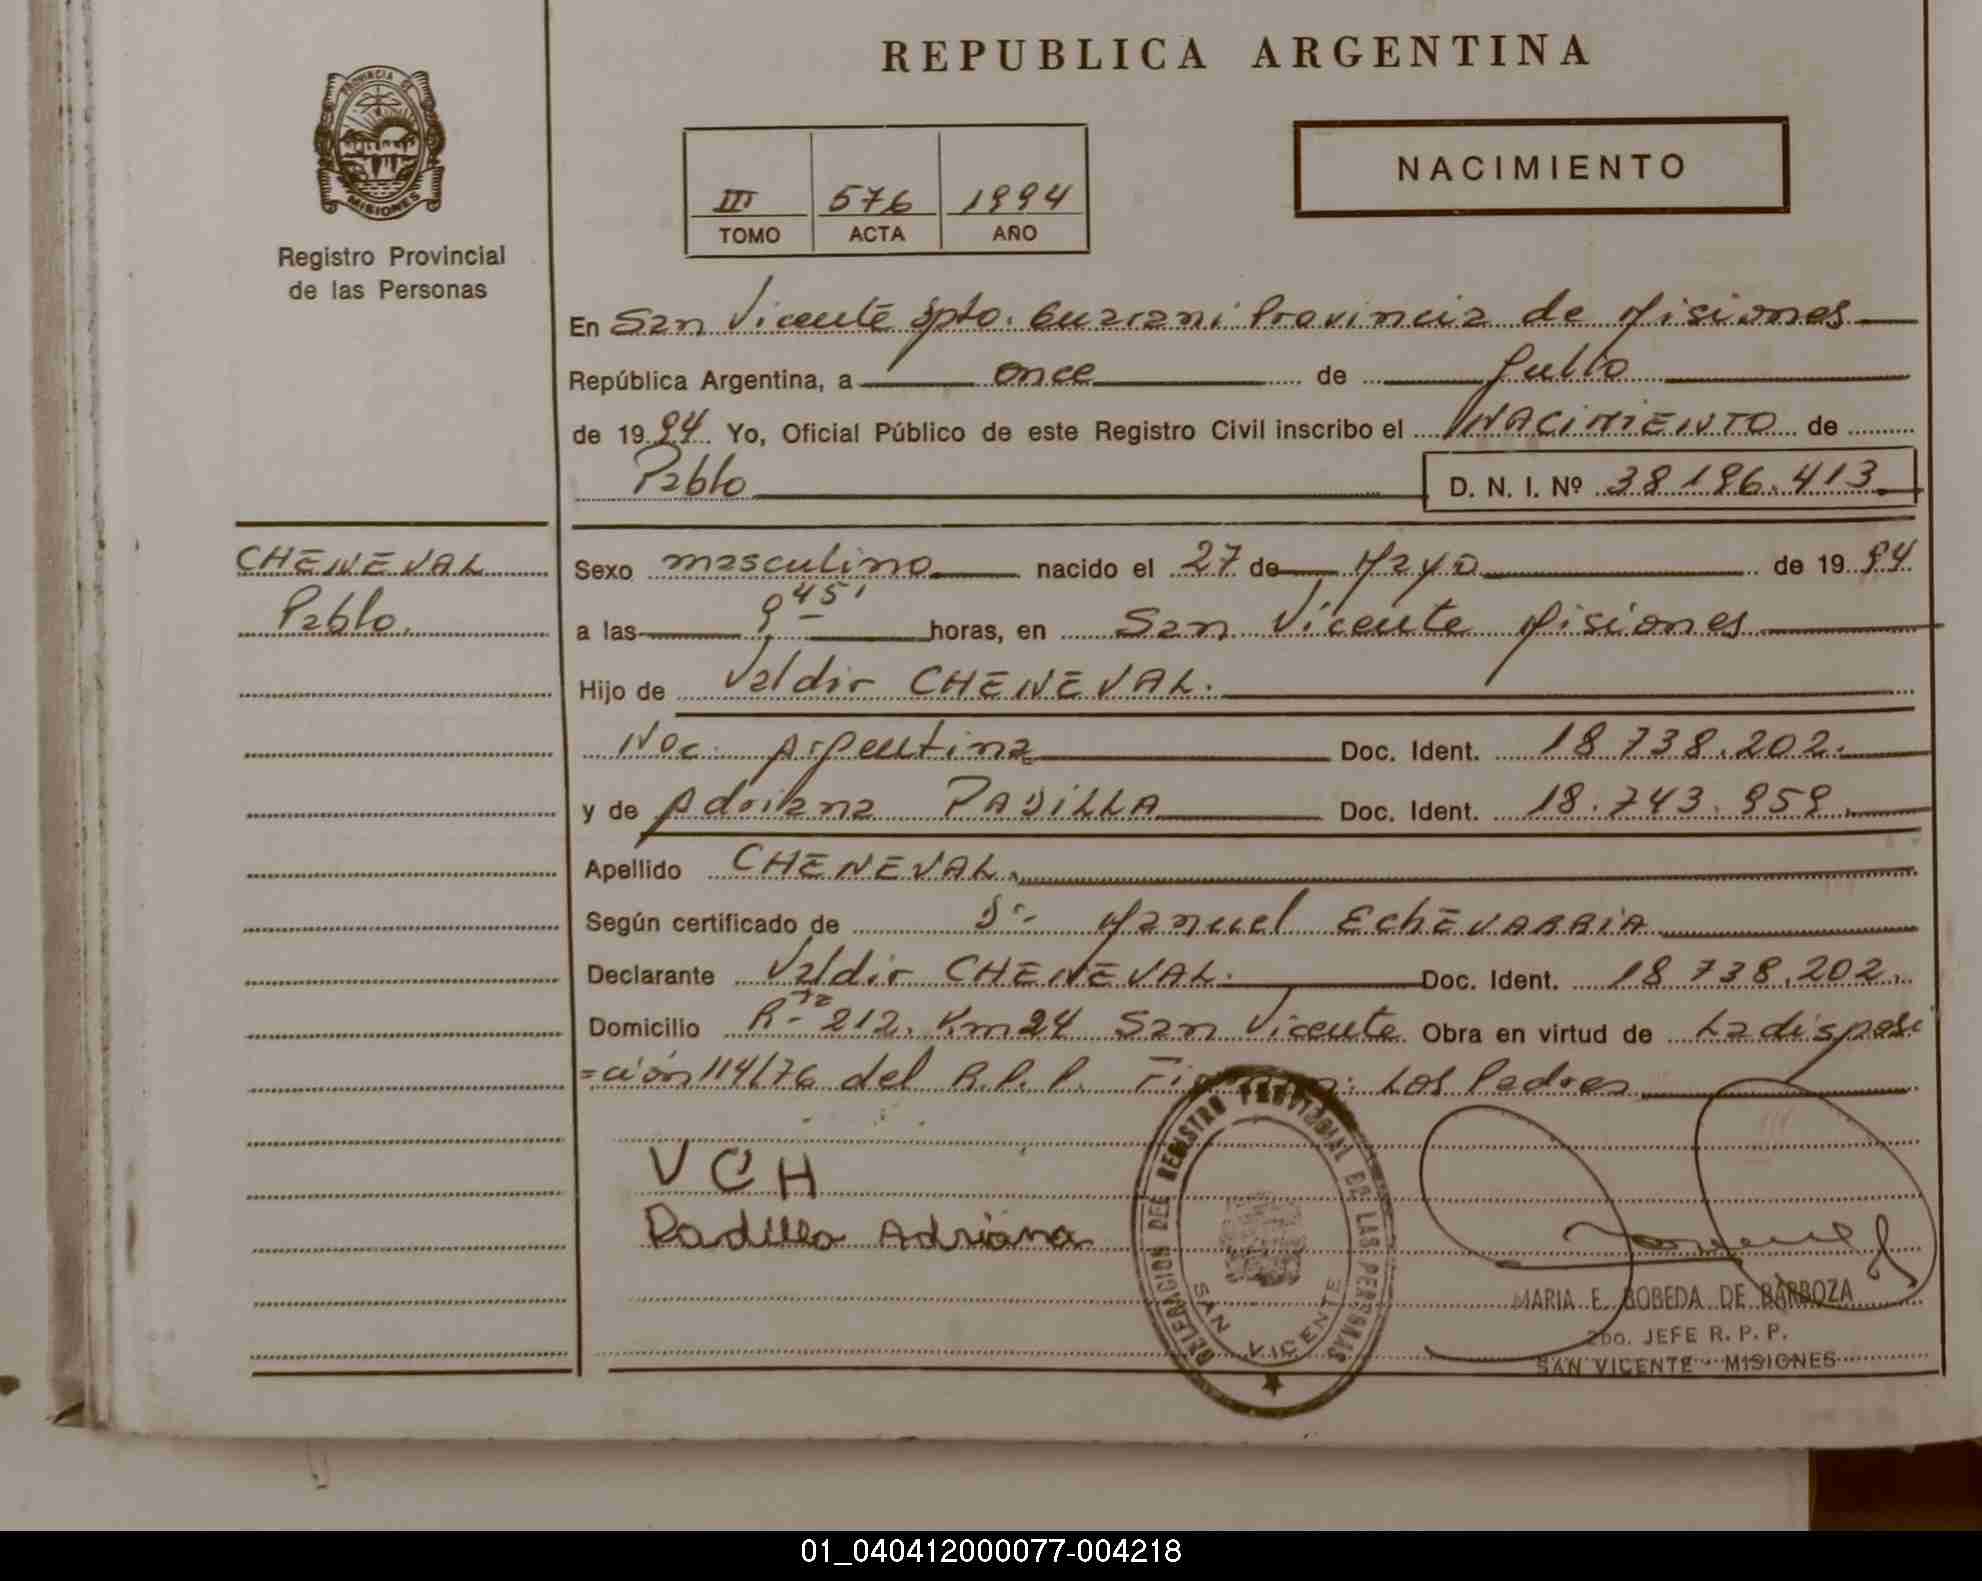 REPUBLICA ARGENTINA
PROVINCIA DE
MISIONES
Registro Provincial
de las Personas
NACIMIENTO
III 576 1994
TOMO ACTA AÑO
En San Vicente Dpto. Guarani Provincia de Misiones
República Argentina, a once de Julio
de 1994 Yo, Oficial Público de este Registro Civil inscribo el NACIMIENTO de
Pablo D. N. I. Nº 38.196.413
CHENEVAL
Pablo.
Sexo masculino nacido el 27 de Mayo de 1994
a las 9 45' horas, en San Vicente Misiones
Hijo de Valdir CHENEVAL.
Nac. Argentina Doc. Ident. 18.738.202.
y de Adriana PADILLA Doc. Ident. 18.743.959.
Apellido CHENEVAL.
Según certificado de Dr. Manuel EchEVARRIA
Declarante Valdir CHENEVAL. Doc. Ident. 18.738.202.
Domicilio R-ta 212. Km 24 San Vicente. Obra en virtud de La disposi
=ción 114/76 del R.P.P. Los Padres
VCH
Padilla Adriana
DELEGACION DEL REGISTRO PROVINCIAL DE LAS PERSONAS
SAN VICENTE
MARIA E. BOBEDA DE BARBOZA
2do. JEFE R. P. P.
SAN VICENTE - MISIONES
01_040412000077-004218